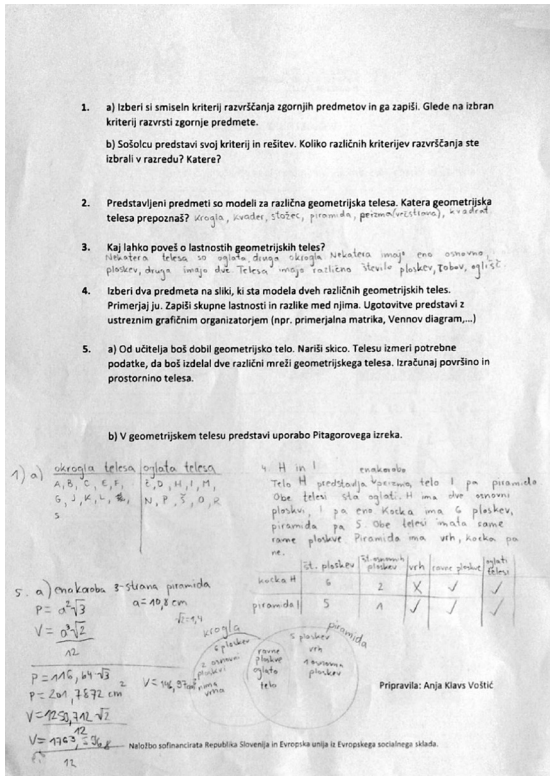 1. a) Izberi si smiseln kriterij razvrščanja zgornjih predmetov in ga zapiši. Glede na izbran
kriterij razvrsti zgornje predmete.
b) Sošolcu predstavi svoj kriterij in rešitev. Koliko različnih kriterijev razvrščanja ste
izbrali v razredu? Katere?
2. Predstavljeni predmeti so modeli za različna geometrijska telesa. Katera geometrijska
telesa prepoznaš? krogla, kvader, stožec, piramida,
3. Kaj lahko poveš o lastnostih geometrijskih teles?
Nekatera telesa so oglata, druga okrogla Nekatera imajo eno osnovno
ploskev, druga imajo dve. Telesa imajo različno število ploskev, robov, oglišč.
4. Izberi dva predmeta na sliki, ki sta modela dveh različnih geometrijskih teles.
Primerjaj ju. Zapiši skupne lastnosti in razlike med njima. Ugotovitve predstavi z
ustreznim grafičnim organizatorjem (npr. primerjalna matrika, Vennov diagram,...)
5. a) Od učitelja boš dobil geometrijsko telo. Nariši skico. Telesu izmeri potrebne
podatke, da boš izdelal dve različni mreži geometrijskega telesa. Izračunaj površino in
prostornino telesa.
b) V geometrijskem telesu predstavi uporabo Pitagorovega izreka.
1) a) okrogla telesa oglata telesa
A, B, C, E, F,
G, J, K, L,
S
D, H, I, M,
N, P, Š, O, R
4. H in I
enakorobo
Telo H predstavlja telo I pa piramido
Obe telesi sta oglati. H ima dve osnovni
ploskvi, I pa eno. Kocka ima 6 ploskev,
piramida pa 5. Obe telesi imata same
ravne ploskve Piramida ima vrh, kocka pa
ne.
št. ploskev št. osnovnih ploskev vrh ravne ploskve oglati telesi
kocka H 6 2 X ✓ ✓
piramida I 5 1 ✓ ✓ ✓
5. a) enakoroba 3-strana piramida
P = a²√3 a = 10,8 cm
V = a³√2
12
P = 116,64 √3
P = 201,7872 cm²
V = 1259,712 √2
12
12
krogla
piramida
6 ploskev
2 osnovni
ploskvi
nima
vrha
ravne
ploskve
oglato
telo
5 ploskev
vrh
1 osnovna
ploskev
Pripravila: Anja Klavs Voštić
Naložbo sofinancirata Republika Slovenija in Evropska unija iz Evropskega socialnega sklada.